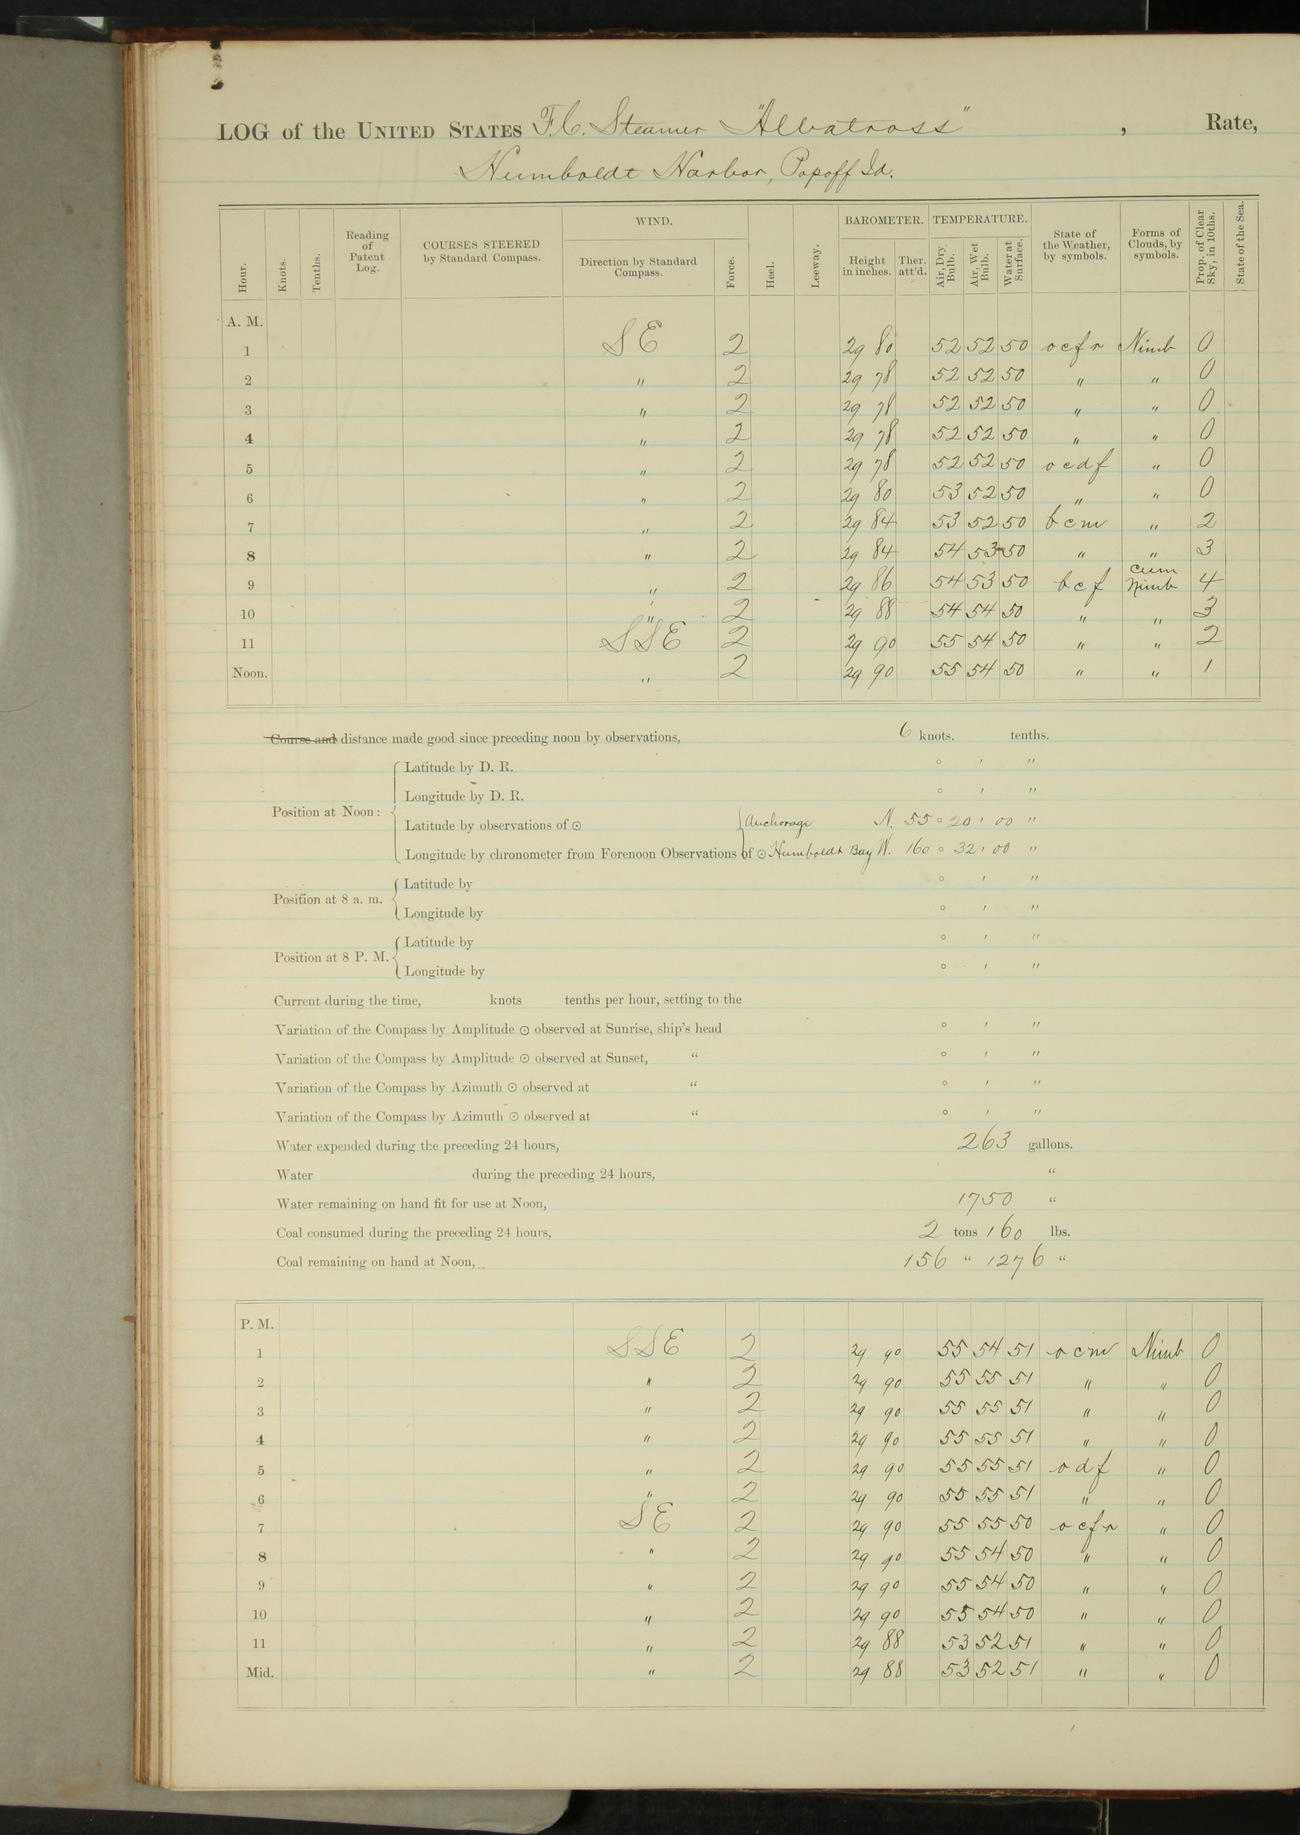 LOG of the UNITED STATES F.C. Steamer "Albatross", Rate,
Humboldt Harbor, Popoff Id.
Hour. Knots. Tenths. Reading of Patent Log. COURSES STEERED by Standard Compass. WIND. Direction by Standard Compass. Force. Heel. Leeway. BAROMETER. Height in inches. Ther. att'd. TEMPERATURE. Air, Dry Bulb. Air, Wet Bulb. Water at Surface. State of the Weather, by symbols. Forms of Clouds, by symbols. Prop. of Clear Sky, in 10ths. State of the Sea.
A. M.
1 SE 2 29 80 52 52 50 ocfr Nimb 0
2 " 2 29 78 52 52 50 " " 0
3 " 2 29 78 52 52 50 " " 0
4 " 2 29 78 52 52 50 " " 0
5 " 2 29 78 52 52 50 ocdf " 0
6 " 2 29 80 53 52 50 " " 0
7 " 2 29 84 53 52 50 bcm " 2
8 " 2 29 84 54 53 50 " " 3
9 " 2 29 86 54 53 50 bcf Cum Nimb 4
10 " 2 29 88 54 54 50 " " 3
11 SSE 2 29 90 55 54 50 " " 2
Noon. " 2 29 90 55 54 50 " " 1
Course and distance made good since preceding noon by observations, 6 knots. tenths.
Latitude by D. R. ° ' "
Longitude by D. R. ° ' "
Position at Noon:
Latitude by observations of ⊙ Anchorage N. 55 ° 20 ' 00 "
Longitude by chronometer from Forenoon Observations of ⊙ Humboldt Bay W. 160 ° 32 ' 00 "
Latitude by ° ' "
Position at 8 a. m.
Longitude by ° ' "
Latitude by ° ' "
Position at 8 P. M.
Longitude by ° ' "
Current during the time, knots tenths per hour, setting to the
Variation of the Compass by Amplitude ⊙ observed at Sunrise, ship's head ° ' "
Variation of the Compass by Amplitude ⊙ observed at Sunset, " ° ' "
Variation of the Compass by Azimuth ⊙ observed at " ° ' "
Variation of the Compass by Azimuth ⊙ observed at " ° ' "
Water expended during the preceding 24 hours, 263 gallons.
Water during the preceding 24 hours, "
Water remaining on hand fit for use at Noon, 1750 "
Coal consumed during the preceding 24 hours, 2 tons 160 lbs.
Coal remaining on hand at Noon, 156 " 1276 "
P. M.
1 SSE 2 29 90 55 54 51 ocm Nimb 0
2 " 2 29 90 55 55 51 " " 0
3 " 2 29 90 55 55 51 " " 0
4 " 2 29 90 55 55 51 " " 0
5 " 2 29 90 55 55 51 odf " 0
6 " 2 29 90 55 55 51 " " 0
7 SE 2 29 90 55 55 50 ocfr " 0
8 " 2 29 90 55 54 50 " " 0
9 " 2 29 90 55 54 50 " " 0
10 " 2 29 90 55 54 50 " " 0
11 " 2 29 88 53 52 51 " " 0
Mid. " 2 29 88 53 52 51 " " 0